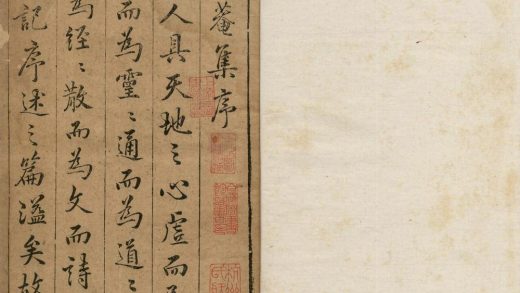 菴集序
人具天地之心虛而
而為靈〻通而為道〻
為經〻散而為文而詩
記序述之篇溢矣故